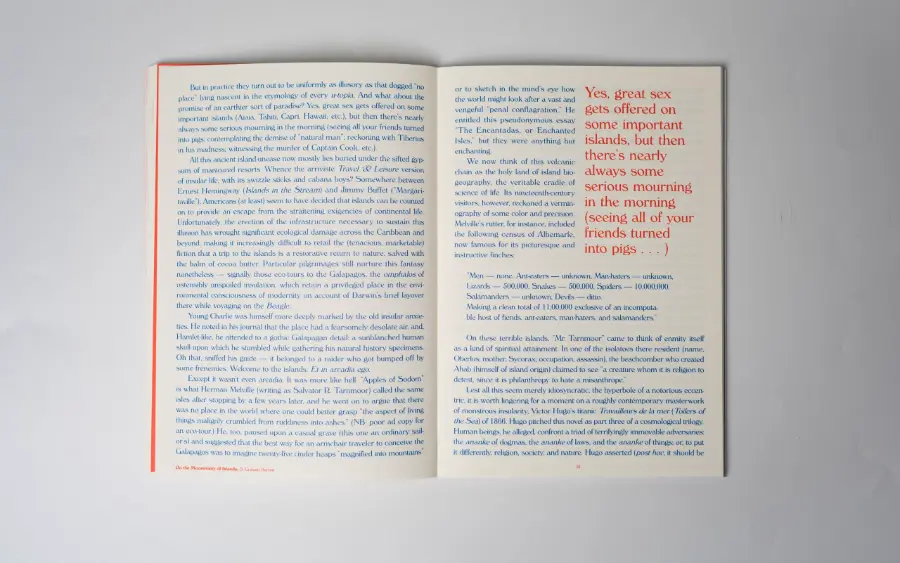 But in practice they turn out to be uniformly as illusory as that dogged "no
place" lying nascent in the etymology of every u-topia. And what about the
promise of an earthier sort of paradise? Yes, great sex gets offered on some
important islands (Aeaea, Tahiti, Capri, Hawaii, etc.), but then there's nearly
always some serious mourning in the morning (seeing all your friends turned
into pigs; contemplating the demise of "natural man"; reckoning with Tiberius
in his madness; witnessing the murder of Captain Cook, etc.).
All this ancient island unease now mostly lies buried under the sifted gyp-
sum of manicured resorts. Whence the arriviste Travel & Leisure version
of insular life, with its swizzle sticks and cabana boys? Somewhere between
Ernest Hemingway (Islands in the Stream) and Jimmy Buffet ("Margari-
taville"), Americans (at least) seem to have decided that islands can be counted
on to provide an escape from the straitening exigencies of continental life.
Unfortunately, the erection of the infrastructure necessary to sustain this
illusion has wrought significant ecological damage across the Caribbean and
beyond, making it increasingly difficult to retail the (tenacious, marketable)
fiction that a trip to the islands is a restorative return to nature, salved with
the balm of cocoa butter. Particular pilgrimages still nurture this fantasy
nonetheless — signally those eco-tours to the Galapagos, the omphalos of
ostensibly unspoiled insulation, which retain a privileged place in the envi-
ronmental consciousness of modernity on account of Darwin's brief layover
there while voyaging on the Beagle.
Young Charlie was himself more deeply marked by the old insular anxie-
ties. He noted in his journal that the place had a fearsomely desolate air, and,
Hamlet-like, he attended to a gothic Galapagean detail: a sunblanched human
skull upon which he stumbled while gathering his natural history specimens.
Oh that, sniffed his guide — it belonged to a raider who got bumped off by
some frenemies. Welcome to the islands. Et in arcadia ego.
Except it wasn't even arcadia. It was more like hell. "Apples of Sodom"
is what Herman Melville (writing as Salvator R. Tarnmoor) called the same
isles after stopping by a few years later, and he went on to argue that there
was no place in the world where one could better grasp "the aspect of living
things malignly crumbled from ruddiness into ashes." (NB: poor ad copy for
an eco-tour.) He, too, paused upon a casual grave (this one an ordinary sail-
or's) and suggested that the best way for an armchair traveler to conceive the
Galapagos was to imagine twenty-five cinder heaps "magnified into mountains"
or to sketch in the mind's eye how
the world might look after a vast and
vengeful "penal conflagration." He
entitled this pseudonymous essay
"The Encantadas, or Enchanted
Isles," but they were anything but
enchanting.
We now think of this volcanic
chain as the holy land of island bio-
geography, the veritable cradle of
science of life. Its nineteenth-century
visitors, however, reckoned a verma-
tography of some color and precision.
Melville's rutter, for instance, included
the following census of Albemarle,
now famous for its picturesque and
instructive finches:
Yes, great sex
gets offered on
some important
islands, but then
there's nearly
always some
serious mourning
in the morning
(seeing all of your
friends turned
into pigs . . . )
"Men — none. Ant-eaters — unknown, Man-haters — unknown,
Lizards — 500,000. Snakes — 500,000, Spiders — 10,000,000.
Salamanders — unknown, Devils — ditto.
Making a clean total of 11,000,000 exclusive of an incomputa-
ble host of fiends, ant-eaters, man-haters, and salamanders."
On these terrible islands, "Mr. Tarnmoor" came to think of enmity itself
as a kind of spiritual attainment. In one of the isolatoes there resident (name,
Oberlus; mother, Sycorax; occupation, assassin), the beachcomber who created
Ahab (himself of island origin) claimed to see "a creature whom it is religion to
detest, since it is philanthropy to hate a misanthrope."
Lest all this seem merely idiosyncratic, the hyperbole of a notorious eccen-
tric, it is worth lingering for a moment on a roughly contemporary masterwork
of monstrous insularity, Victor Hugo's titanic Travailleurs de la mer (Toilers of
the Sea) of 1866. Hugo pitched this novel as part three of a cosmological trilogy.
Human beings, he alleged, confront a triad of terrifyingly immovable adversaries:
the ananke of dogmas, the ananke of laws, and the ananke of things; or, to put
it differently, religion, society, and nature. Hugo asserted (post hoc, it should be